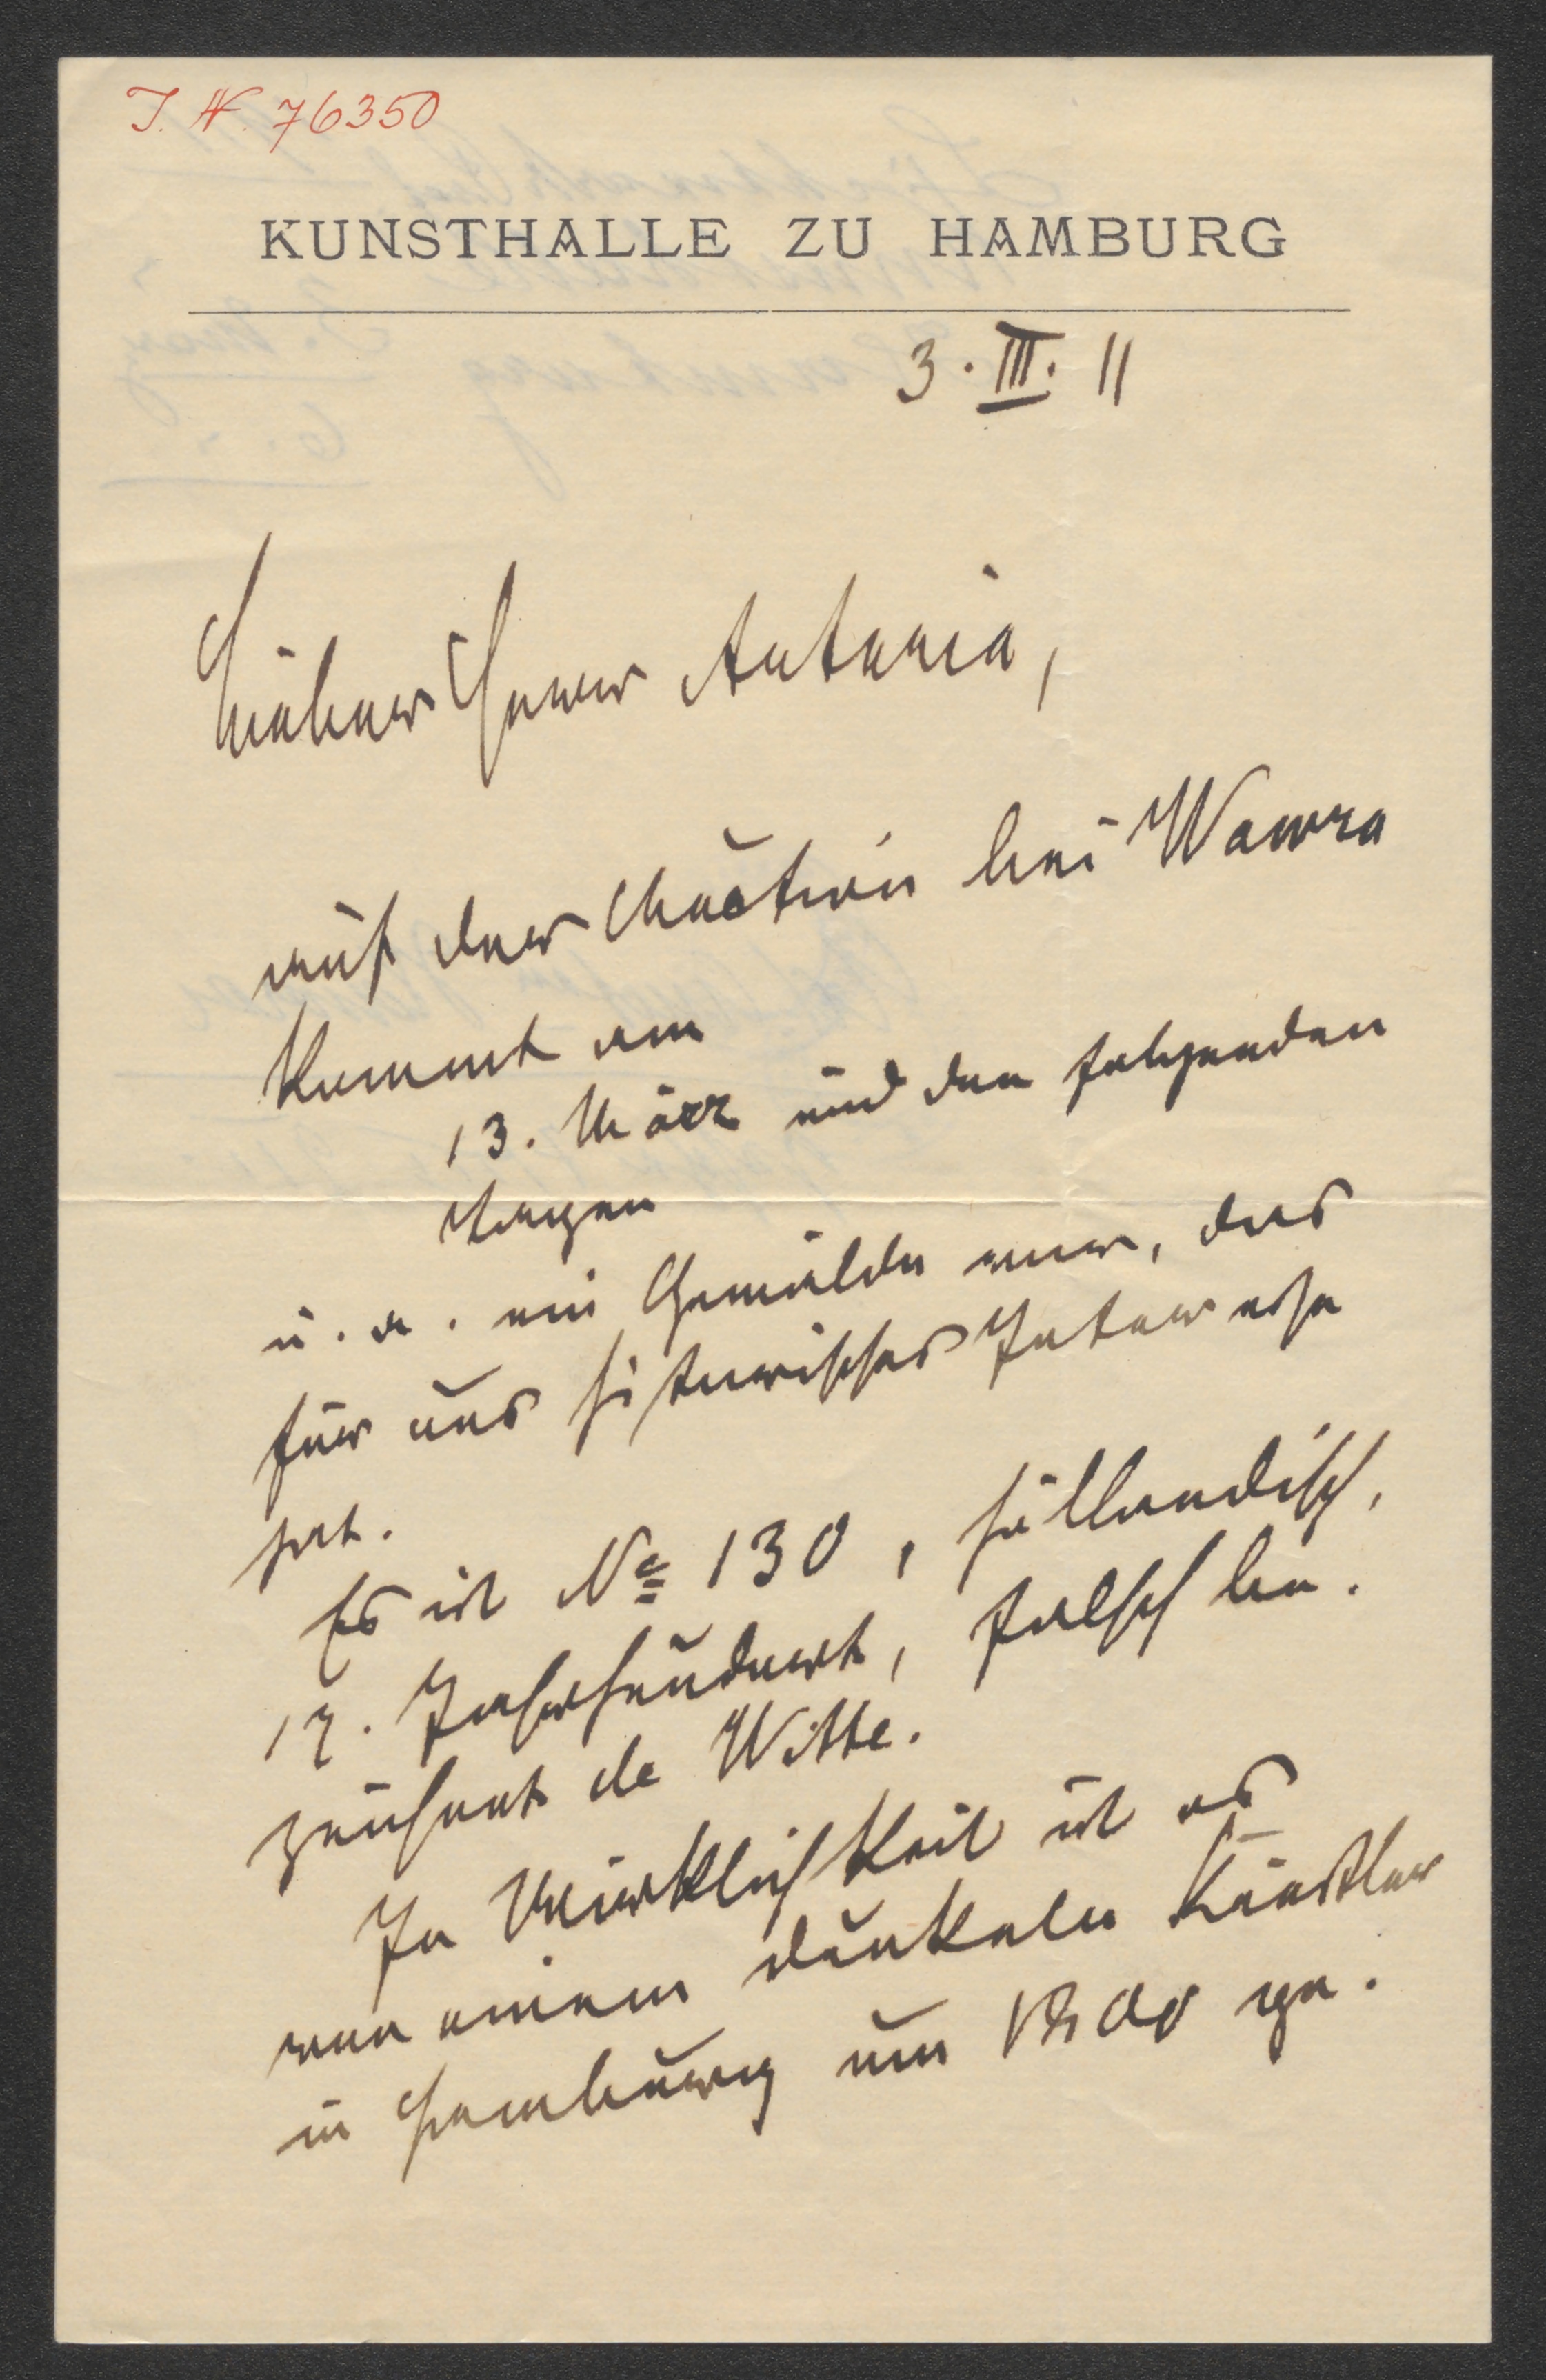 J. N. 76350
KUNSTHALLE ZU HAMBURG
3. III. 11
Lieber Herr Antonia,
auf der Auction bei Wawra
kommt am
13. März und den folgenden
Tagen
u. a. ein Gemälde vor, das
für uns historisches Interesse
hat.
Es ist No 130, holländisch,
17. Jahrhundert, falsch be-
zeichnet de Witte.
In Wirklichkeit ist es
von einem dunkeln Künstler
in Hamburg um ge-